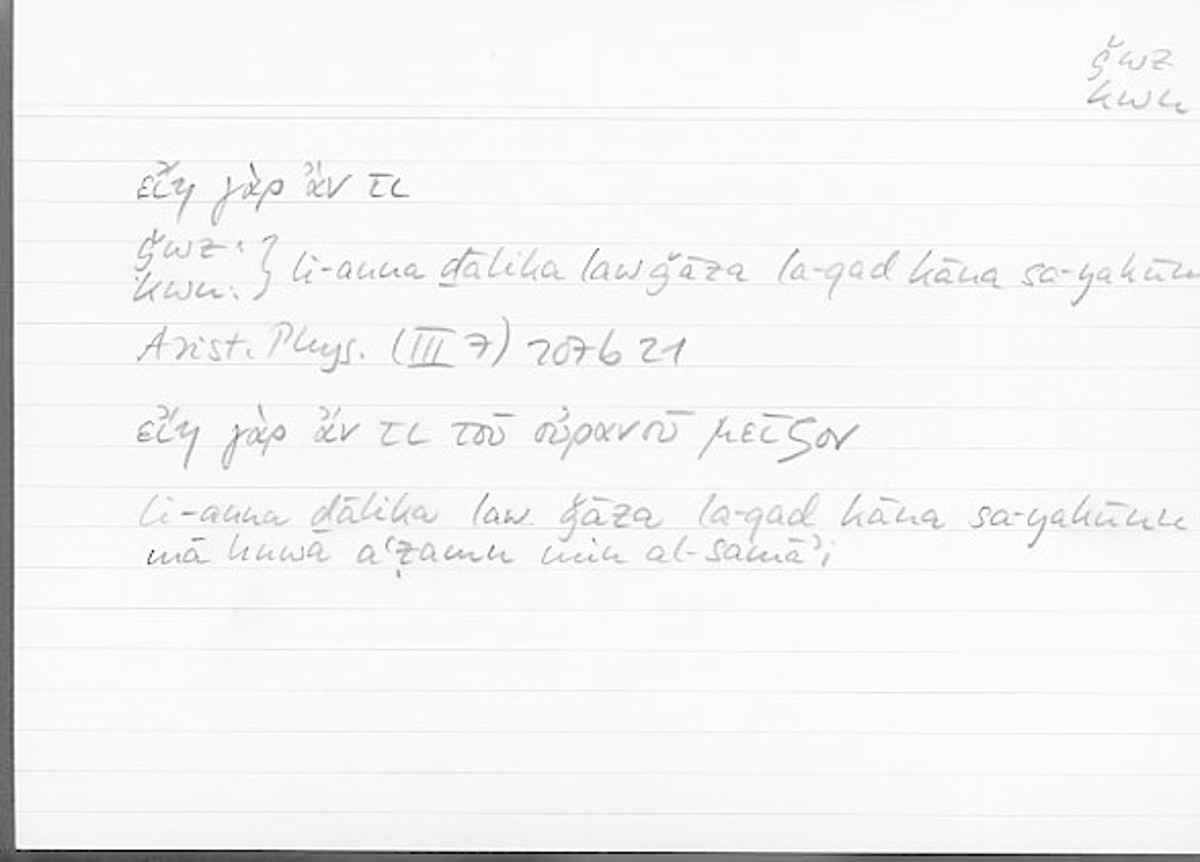 ǧwz
kwn
εἴη γὰρ ἄν τι
ǧwz:
kwn: } li-anna ḏālika law ǧāza la-qad kāna sa-yakūn
Arist. Phys. (III 7) 207b21
εἴη γὰρ ἄν τι τοῦ οὐρανοῦ μεῖζον
li-anna ḏālika law ǧāza la-qad kāna sa-yakūnu
mā huwā aʿẓamu min al-samāʾi